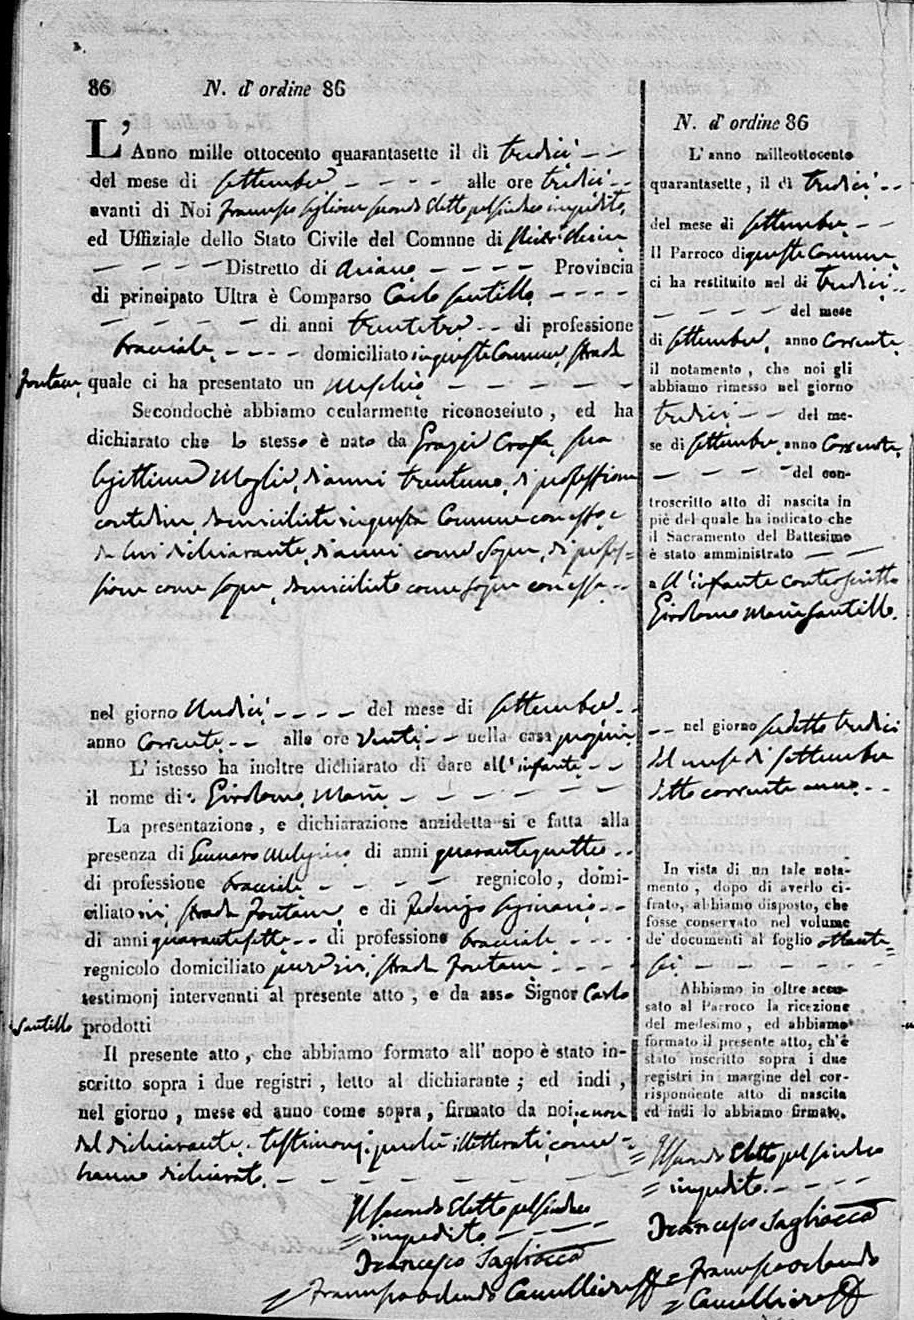 86 N. d' ordine 86
L' Anno mille ottocento quarantasette il di tredici
del mese di settembre alle ore tredici
avanti di Noi Francesco secondo Eletto pel Sindaco impedito,
ed Uffiziale dello Stato Civile del Comune di
Distretto di Ariano Provincia
di principato Ultra è Comparso Carlo Santillo
di anni trentatre di professione
bracciale domiciliato in questo Comune, strada
Fontana, quale ci ha presentato un maschio
Secondochè abbiamo ocularmente riconosciuto, ed ha
dichiarato che lo stesso è nato da Grazia Crafa, sua
legittima Moglie, di anni trentuno, di professione
contadina, domiciliata in questo Comune con esso, e
da lui dichiarante, di anni come sopra, di profes=
sione come sopra, domiciliato come sopra con essa
nel giorno Undici del mese di settembre
anno corrente alle ore venti nella casa propria
L' istesso ha inoltre dichiarato di dare all' infante
il nome di: Girolamo Maria
La presentazione, e dichiarazione anzidetta si e fatta alla
presenza di Gennaro di anni quarantaquattro
di professione bracciale regnicolo, domi-
ciliato ivi, strada Fontana, e di Federigo
di anni quarantasette di professione bracciale
regnicolo domiciliato pure ivi, strada Fontana
testimonj intervenuti al presente atto, e da esso Signor Carlo
Santillo prodotti
Il presente atto, che abbiamo formato all' uopo è stato in-
scritto sopra i due registri, letto al dichiarante; ed indi,
nel giorno, mese ed anno come sopra, firmato da noi, e non
dal dichiarante, e testimonj, perchè illetterati, come
hanno dichiarato.
Il secondo Eletto pel Sindaco
= impedito
Francesco Sagliocca
= Francesco Orlando Cancelliere
N. d' ordine 86
L' anno milleottocento
quarantasette, il di tredici
del mese di settembre
Il Parroco di questo Comune
ci ha restituito nel di tredici
del mese
di settembre, anno corrente
il notamento, che noi gli
abbiamo rimesso nel giorno
tredici del me-
se di settembre, anno corrente,
del con-
troscritto atto di nascita in
piè del quale ha indicato che
il Sacramento del Battesimo
è stato amministrato
a all' infante controscritto
Girolamo Maria Santillo.
nel giorno sudetto tredici
del mese di settembre
detto corrente anno.
In vista di un tale nota-
mento, dopo di averlo ci-
frato, abbiamo disposto, che
fosse conservato nel volume
de' documenti al foglio ottanta=
sei
Abbiamo in oltre accu-
sato al Parroco la ricezione
del medesimo, ed abbiamo
formato il presente atto, ch' è
stato inscritto sopra i due
registri in margine del cor-
rispondente atto di nascita
ed indi lo abbiamo firmato.
Il secondo Eletto pel Sindaco
= impedito.
Francesco Sagliocca
= Francesco Orlando
= Cancelliere